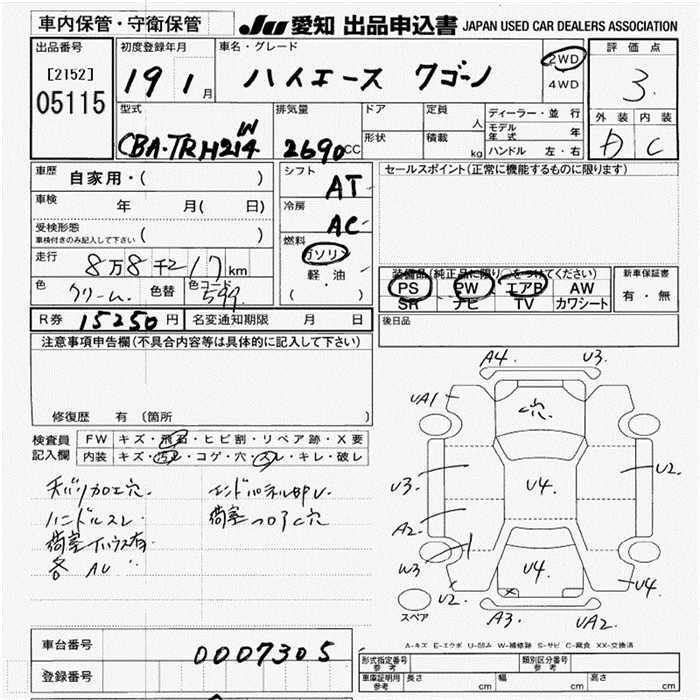 車内保管・守衛保管
JU 愛知 出品申込書 JAPAN USED CAR DEALERS ASSOCIATION
出品番号
[2152]
05115
初度登録年月
19 1月
車名・グレード
ハイエース ワゴン
2WD
4WD
評価点
3
外装 内装
D C
型式
CBA-TRH214W
排気量
2690CC
ドア
形状
定員 人
積載 kg
ディーラー・並行
モデル年式 年
ハンドル 左・右
車歴 自家用・( )
車検 年 月( 日)
受検形態
車検付きのみ記入して下さい ( )
走行 8万8千217km
色 クリーム 色替 色コード 599
シフト AT
冷房 AC
燃料 ガソリン
軽・油
( )
セールスポイント(正常に機能するものに限ります)
装備品(純正品に限り○をつけてください)
PS PW エアB AW
SR ナビ TV カワシート
新車保証書
有・無
R券 15250円 名変通知期限 月 日
後日品
注意事項申告欄(不具合内容等は具体的に記入して下さい)
修復歴 有 (箇所
検査員記入欄
FW キズ・飛石・ヒビ割・リペア跡・X要
内装 キズ・汚レ・コゲ・穴・スレ・キレ・破レ
天バリ加工穴.
ハンドルスレ
荷室
各 AU
荷室フロアC穴
A4. U3.
UA1
穴.
U3.
U4.
U2.
A2.
W3
U4.
U4.
U2.
A3.
UA2.
スペア
A-キズ E-エクボ U-凹み W-補修跡 S-サビ C-腐食 XX-交換済
車台番号 0007305
登録番号
形式指定番号 参考
類別区分番号 参考
車庫証明用 参考 長さ cm 幅 cm 高さ cm